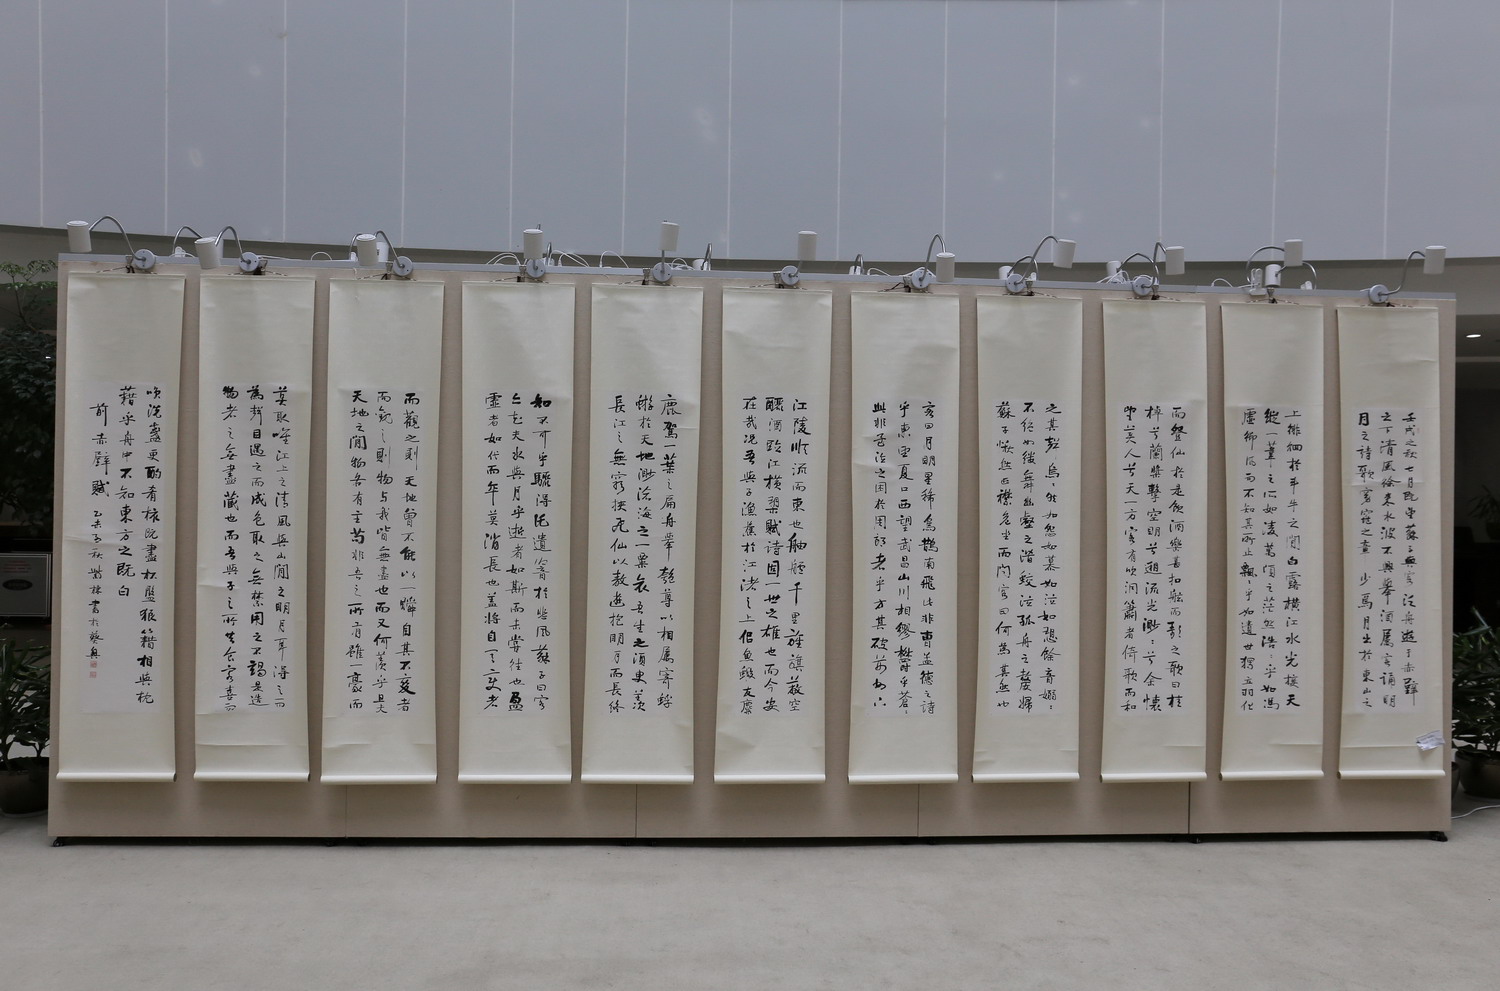 壬戌之秋七月既望蘇子與客泛舟遊于赤壁
之下清風徐來水波不興舉酒屬客誦明
月之詩歌窈窕之章少焉月出於東山之
上徘徊於斗牛之間白露橫江水光接天
縱一葦之所如凌萬頃之茫然浩:乎如馮
虛御風而不知其所止飄:乎如遺世獨立羽化
而登仙於是飲酒樂甚扣舷而歌之歌曰桂
棹兮蘭槳擊空明兮溯流光渺:兮余懷
望美人兮天一方客有吹洞簫者倚歌而和
之其聲嗚:然如怨如慕如泣如愬餘音嫋:
不絕如縷舞幽壑之潛蛟泣孤舟之嫠婦
蘇子愀然正襟危坐而問客曰何為其然也
客曰月明星稀烏鵲南飛此非曹孟德之詩
乎東望夏口西望武昌山川相繆鬱乎蒼:
此非孟德之困於周郎者乎方其破荊州下
江陵順流而東也舳艫千里旌旗蔽空
釃酒臨江橫槊賦詩固一世之雄也而今安
在哉況吾與子漁樵於江渚之上侶魚蝦友麋
鹿駕一葉之扁舟舉匏尊以相屬寄蜉
蝣於天地渺滄海之一粟哀吾生之須臾羨
長江之無窮挾飛仙以遨遊抱明月而長終
知不可乎驟得託遺響於悲風蘇子曰客
亦知夫水與月乎逝者如斯而未嘗往也盈
虛者如代而卒莫消長也蓋將自其變者
而觀之則天地曾不能以一瞬自其不變者
而觀之則物與我皆無盡也而又何羨乎且夫
天地之間物各有主苟非吾之所有雖一毫而
莫取唯江上之清風與山間之明月耳得之而
為聲目遇之而成色取之無禁用之不竭是造
物者之無盡藏也而吾與子之所共食客喜而
笑洗盞更酌肴核既盡杯盤狼籍相與枕
藉乎舟中不知東方之既白
前赤壁賦 乙未 秋 書於